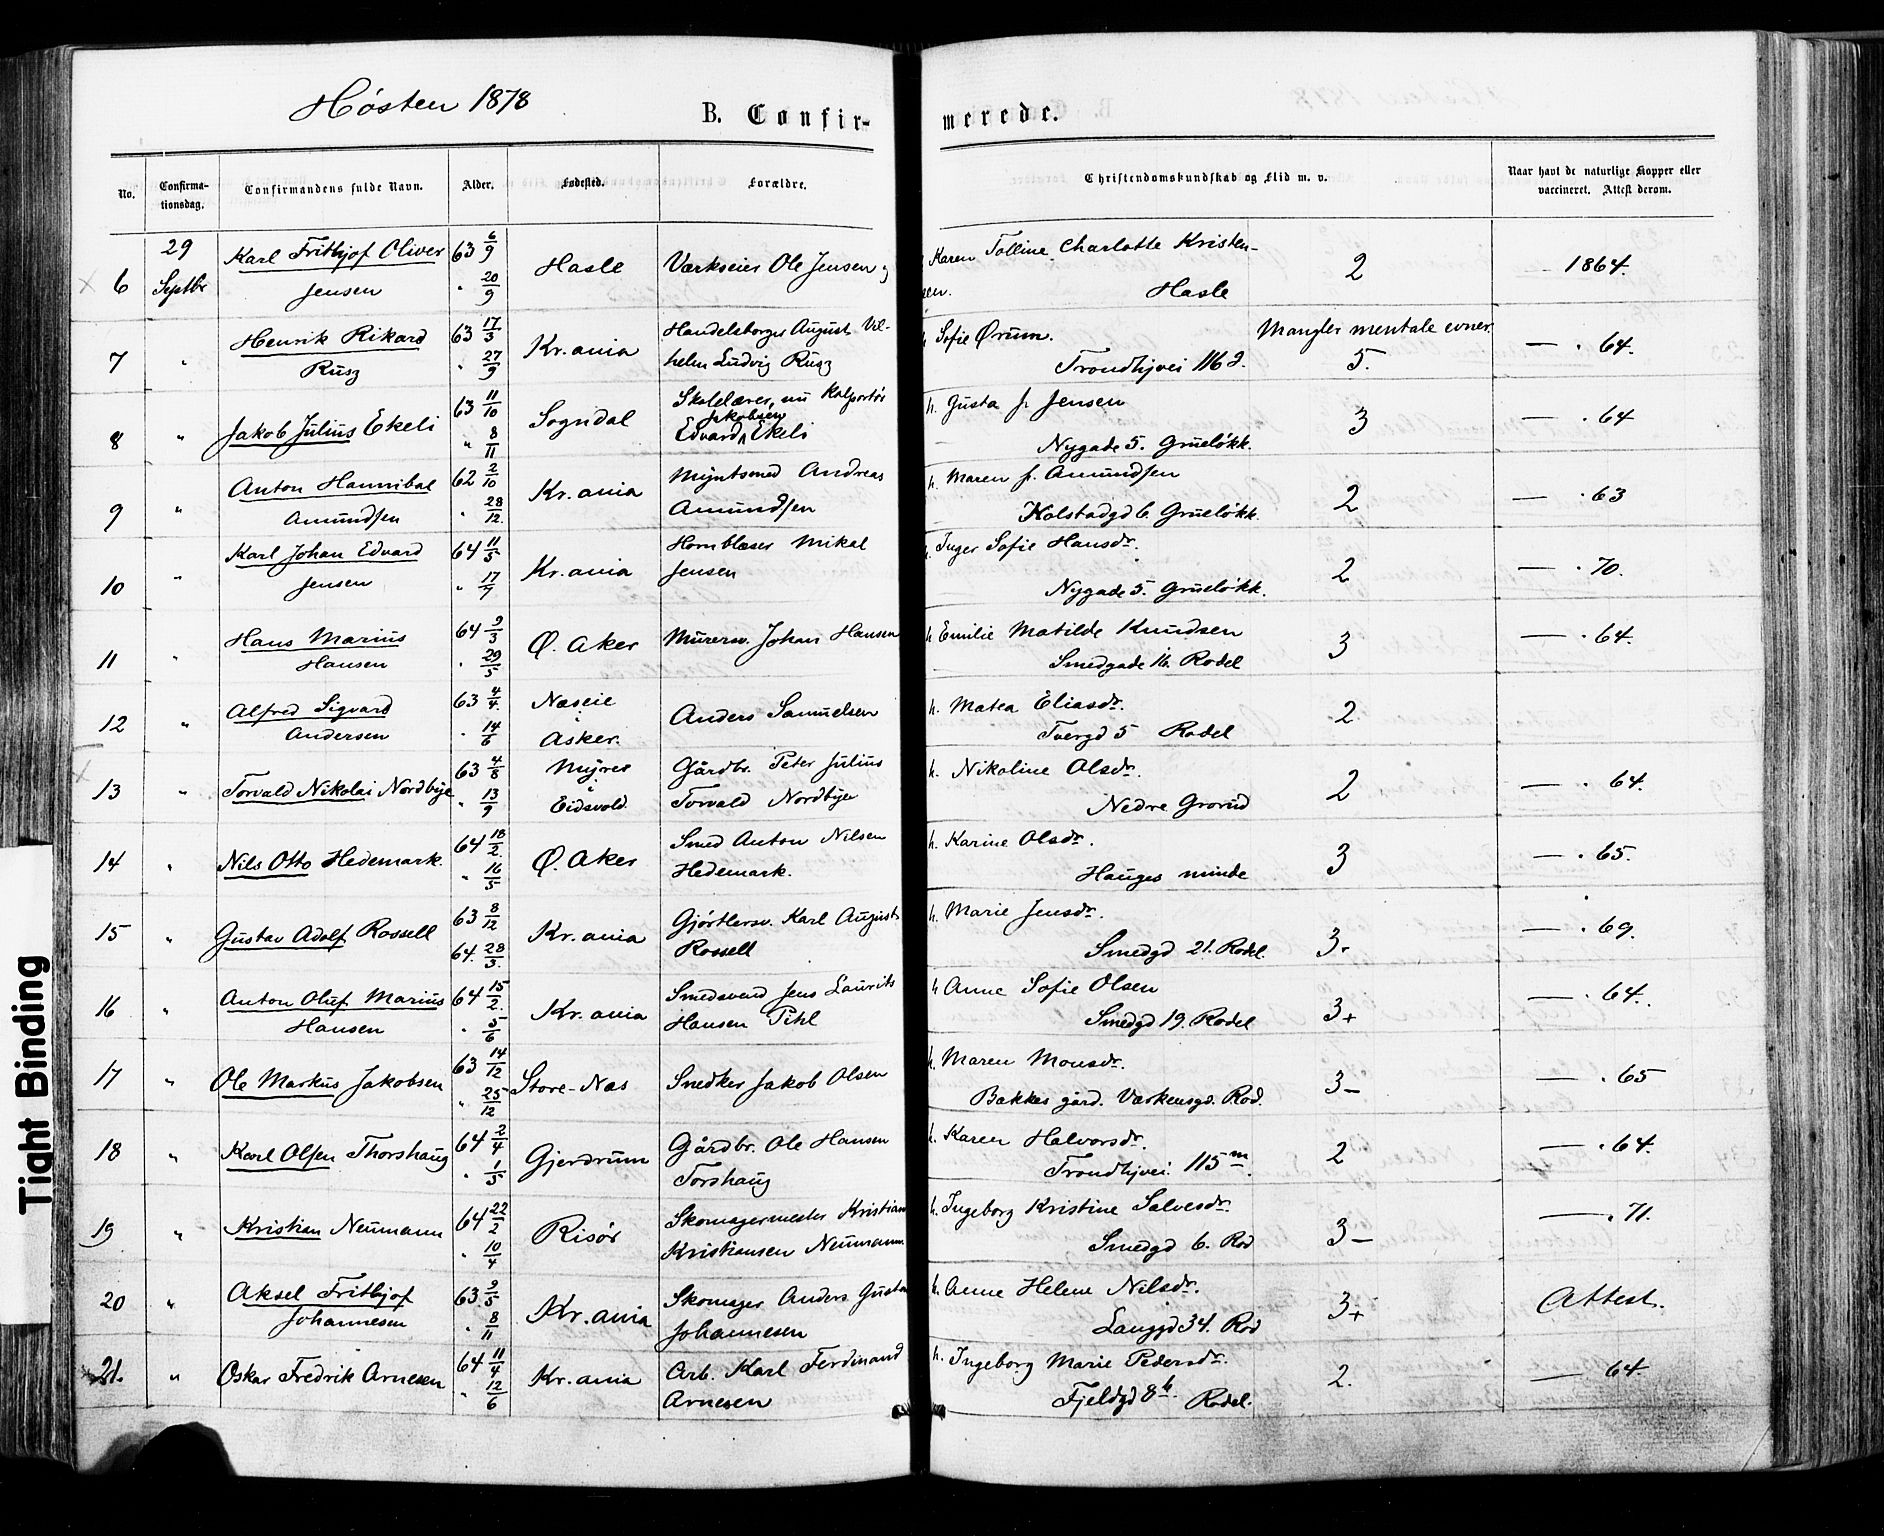 Høsten 1878
B. Confirmerede.
No. Confirmationsdag. Confirmandens fulde Navn. Alder. Fødested. Forældre. Christendomskundskab og Flid m. v. Naar havt de naturlige Kopper eller vaccineret. Attest derom.
6 29 Septbr Karl Frithjof Oliver Jensen 63 6/9 " 20/9 Hasle Værkseier Ole Jensen og Karen Tolline Charlotte Kristensen. Hasle 2 1864.
7 " Henrik Rikard Rusz 63 17/3 " 27/9 Kr.ania Handelsborger August Vilhelm Ludvig Rusz h. Sofie Ørum. Trondhjvei 116 d. Mangler mentale evner. 5. — " 64.
8 " Jakob Julius Ekeli 63 11/10 " 8/11 Sogndal Skolelærer, nu Kolportør Edvard Jakobsen Ekeli h. Gusta f. Jensen Nygade 5. Grueløkk. 3 — " 64
9 " Anton Hannibal Amundsen 62 2/10 " 28/12. Kr.ania Myntsmed Andreas Amundsen h. Maren f. Amundsen Holstadgd 6. Grueløkk. 2 — " 63
10 " Karl Johan Edvard Jensen 64 11/5 " 17/7 Kr.ania Hornblæser Mikal Jensen h. Inger Sofie Hansdr. Nygade 5. Grueløkk. 2 — " 70.
11 " Hans Marius Hansen 64 9/3 " 29/5 Ø. Aker Murersv. Johan Hansen h Emilie Matilde Knudsen Smedgade 16. Rodel 3 — " 64.
12 " Alfred Sigvard Andersen 63 4/4. " 14/6 Næseie i Asker. Anders Samuelsen h. Matea Eliasdr. Tvergd 5 Rodel 2
13 " Torvald Nikolai Nordbye 63 4/8 " 13/9 Myrer i Eidsvold. Gårdbr. Peter Julius Torvald Nordbye h. Nikoline Olsdr. Nedre Grorud 2 — " 64.
14 " Nils Otto Hedemark. 64 18/2. " 16/5 Ø. Aker Smed Anton Nilsen Hedemark. h. Karine Olsdr. Hauges minde 3 — " 65.
15 " Gustav Adolf Rossell 63 8/12 64. 28/3. Kr.ania Gjørtlersv. Karl August Rossell h. Marie Jensdr. Smedgd 21. Rodel. 3. — " 69.
16 " Anton Oluf Marius Hansen 64 15/2. " 5/6 Kr.ania Smedsvend Jens Laurits Hansen Pihl h Anne Sofie Olsen Smedgd 19. Rodel 3+ — " 64.
17 " Ole Markus Jakobsen 63 14/12 " 25/12 Store-Nas Snedker Jakob Olsen h. Maren Monsdr. Bakkes gård. Værkensgd. Rod. 3— — " 65
18 " Karl Olsen Thorshaug 64 2/4 " 1/5 Gjerdrum Gårdbr. Ole Hansen Torshaug h. Karen Halvorsdr. Trondhjvei. 115 m. 2 — " 64.
19 " Kristian Neumann 64 22/2 " 10/4 Risør Skomagermester Kristian Kristiansen Neumann. h. Ingeborg Kristine Salvesdr. Smedgd 6. Rod 3— — " 71.
20 " Aksel Frithjof Johannesen 63 9/5 " 8/11 Kr.ania Skomager Anders Gustav Johannesen h. Anne Helene Nilsdr. Langgd 34. Rod 3+ Attest.
21. " Oskar Fredrik Arnesen 64 11/4 " 12/6 Kr.ania Arb. Karl Ferdinand Arnesen h. Ingeborg Marie Pedersdr. Fjeldgd 8 b. Rodel. 2. — 64.
Tight Binding